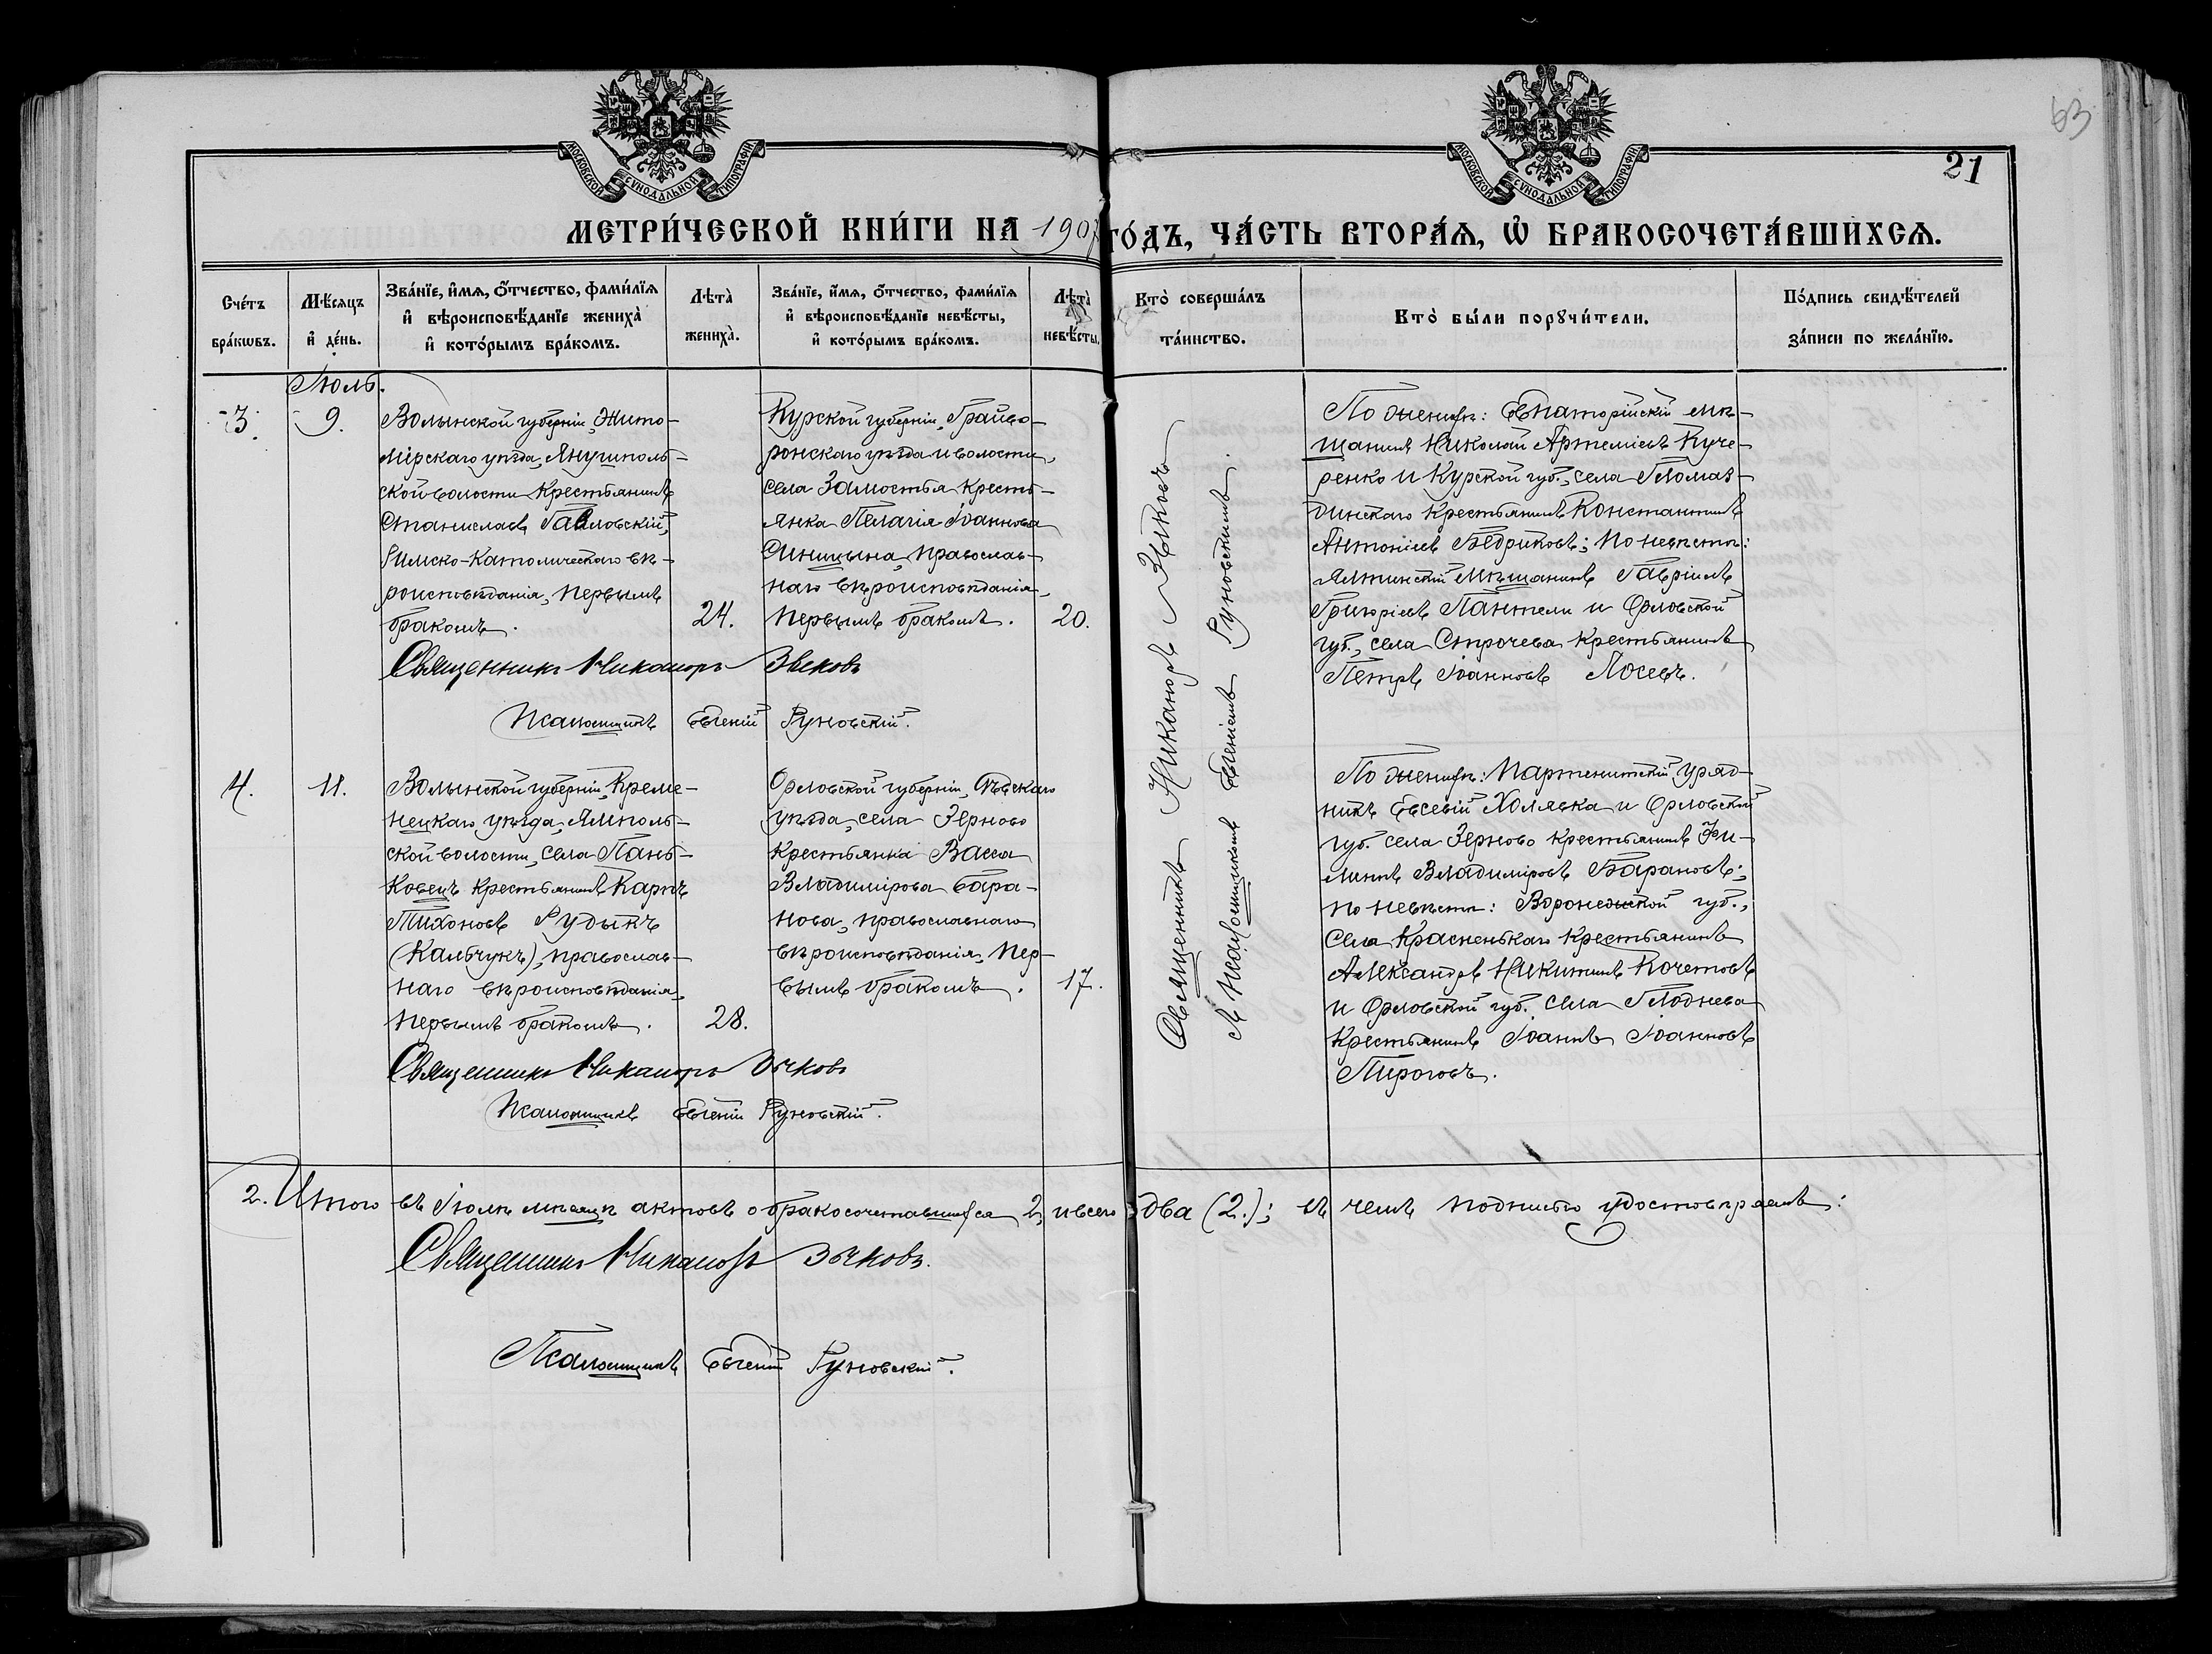 63
21
МОСКОВСКОЙ СУНОДАЛЬНОЙ ТИПОГРАФІИ
МОСКОВСКОЙ СУНОДАЛЬНОЙ ТИПОГРАФІИ
МЕТРИ́ЧЕСКОЙ КНИ́ГИ НА 1907 ГО́ДЪ, ЧА́СТЬ ВТОРА́Я, Ѡ БРАКОСОЧЕТА́ВШИХСЯ.
Сче́тъ
бра́кѡвъ.
Мѣ́сяцъ
и҆ де́нь.
Зва́нїе, и҆́мя, о҆́тчество, фами́лїя
и҆ вѣроисповѣ́данїе жениха̀
и҆ кото́рымъ бра́комъ.
Лѣта̀
жениха̀.
Зва́нїе, и҆́мя, о҆́тчество, фами́лїя
и҆ вѣроисповѣ́данїе невѣ́сты,
и҆ кото́рымъ бра́комъ.
Лѣта̀
невѣ́сты.
Кто̀ соверша́лъ
та́инство.
Кто̀ бы́ли порꙋчи́тели.
По́дпись свидѣ́телей
за́писи по жела́нїю.
Іюль.
3.
9.
Волынской губерніи, Жито-
мірскаго уѣзда, Янушполь-
ской волости крестьянинъ
Станиславъ Гавловскій,
Римско-Католическаго вѣ-
роисповѣданія, первымъ
бракомъ.
24.
Курской губерніи, Грайво-
ронскаго уѣзда и волости,
села Замостья кресть-
янка Пелагія Іоаннова
Синицына, православ-
наго вѣроисповѣданія,
первымъ бракомъ.
20.
Священникъ Никаноръ Зыковъ
Псаломщикъ Евгеній Руновскій.
Священникъ Никаноръ Зыковъ
съ псаломщикомъ Евгеніемъ Руновскимъ.
По женихѣ: Евпаторійскій мѣ-
щанинъ Николай Артеміевъ Куче-
ренко и Курской губ., села
крестьянинъ Константинъ
Антоніевъ Бедриковъ; по невѣстѣ:
Ялтинскій мѣщанинъ Гавріилъ
Григоріевъ Пантели и Орловской
губ., села Строчева крестьянинъ
Петръ Іоанновъ Лосевъ.
4.
11.
Волынской губерніи, Креме-
нецкаго уѣзда, Ямполь-
ской волости, села Пань-
ковецъ крестьянинъ Карпъ
Тихоновъ Рудыкъ
(Кальчукъ), православ-
наго вѣроисповѣданія,
первымъ бракомъ.
28.
Орловской губерніи, Сѣвскаго
уѣзда, села Зерново
крестьянка Васса
Владимірова Бара-
нова, православнаго
вѣроисповѣданія, пер-
вымъ бракомъ.
17.
Священникъ Никаноръ Зыковъ
Псаломщикъ Евгеній Руновскій.
По женихѣ: Партенитскій уряд-
никъ Евсевій Холявка и Орловской
губ. села Зерново крестьянинъ Фи-
липпъ Владиміровъ Барановъ;
по невѣстѣ: Воронежской губ.,
села Красненькаго крестьянинъ
Александръ Никитинъ Кочетовъ
и Орловской губ. села
крестьянинъ Іоаннъ Іоанновъ
Пироговъ.
2. Итого въ Іюлѣ мѣсяцѣ актовъ о бракосочетавшихся 2, и всего два (2.); въ чемъ подписью удостовѣряемъ:
Священникъ Никаноръ Зыковъ.
Псаломщикъ Евгеній Руновскій.